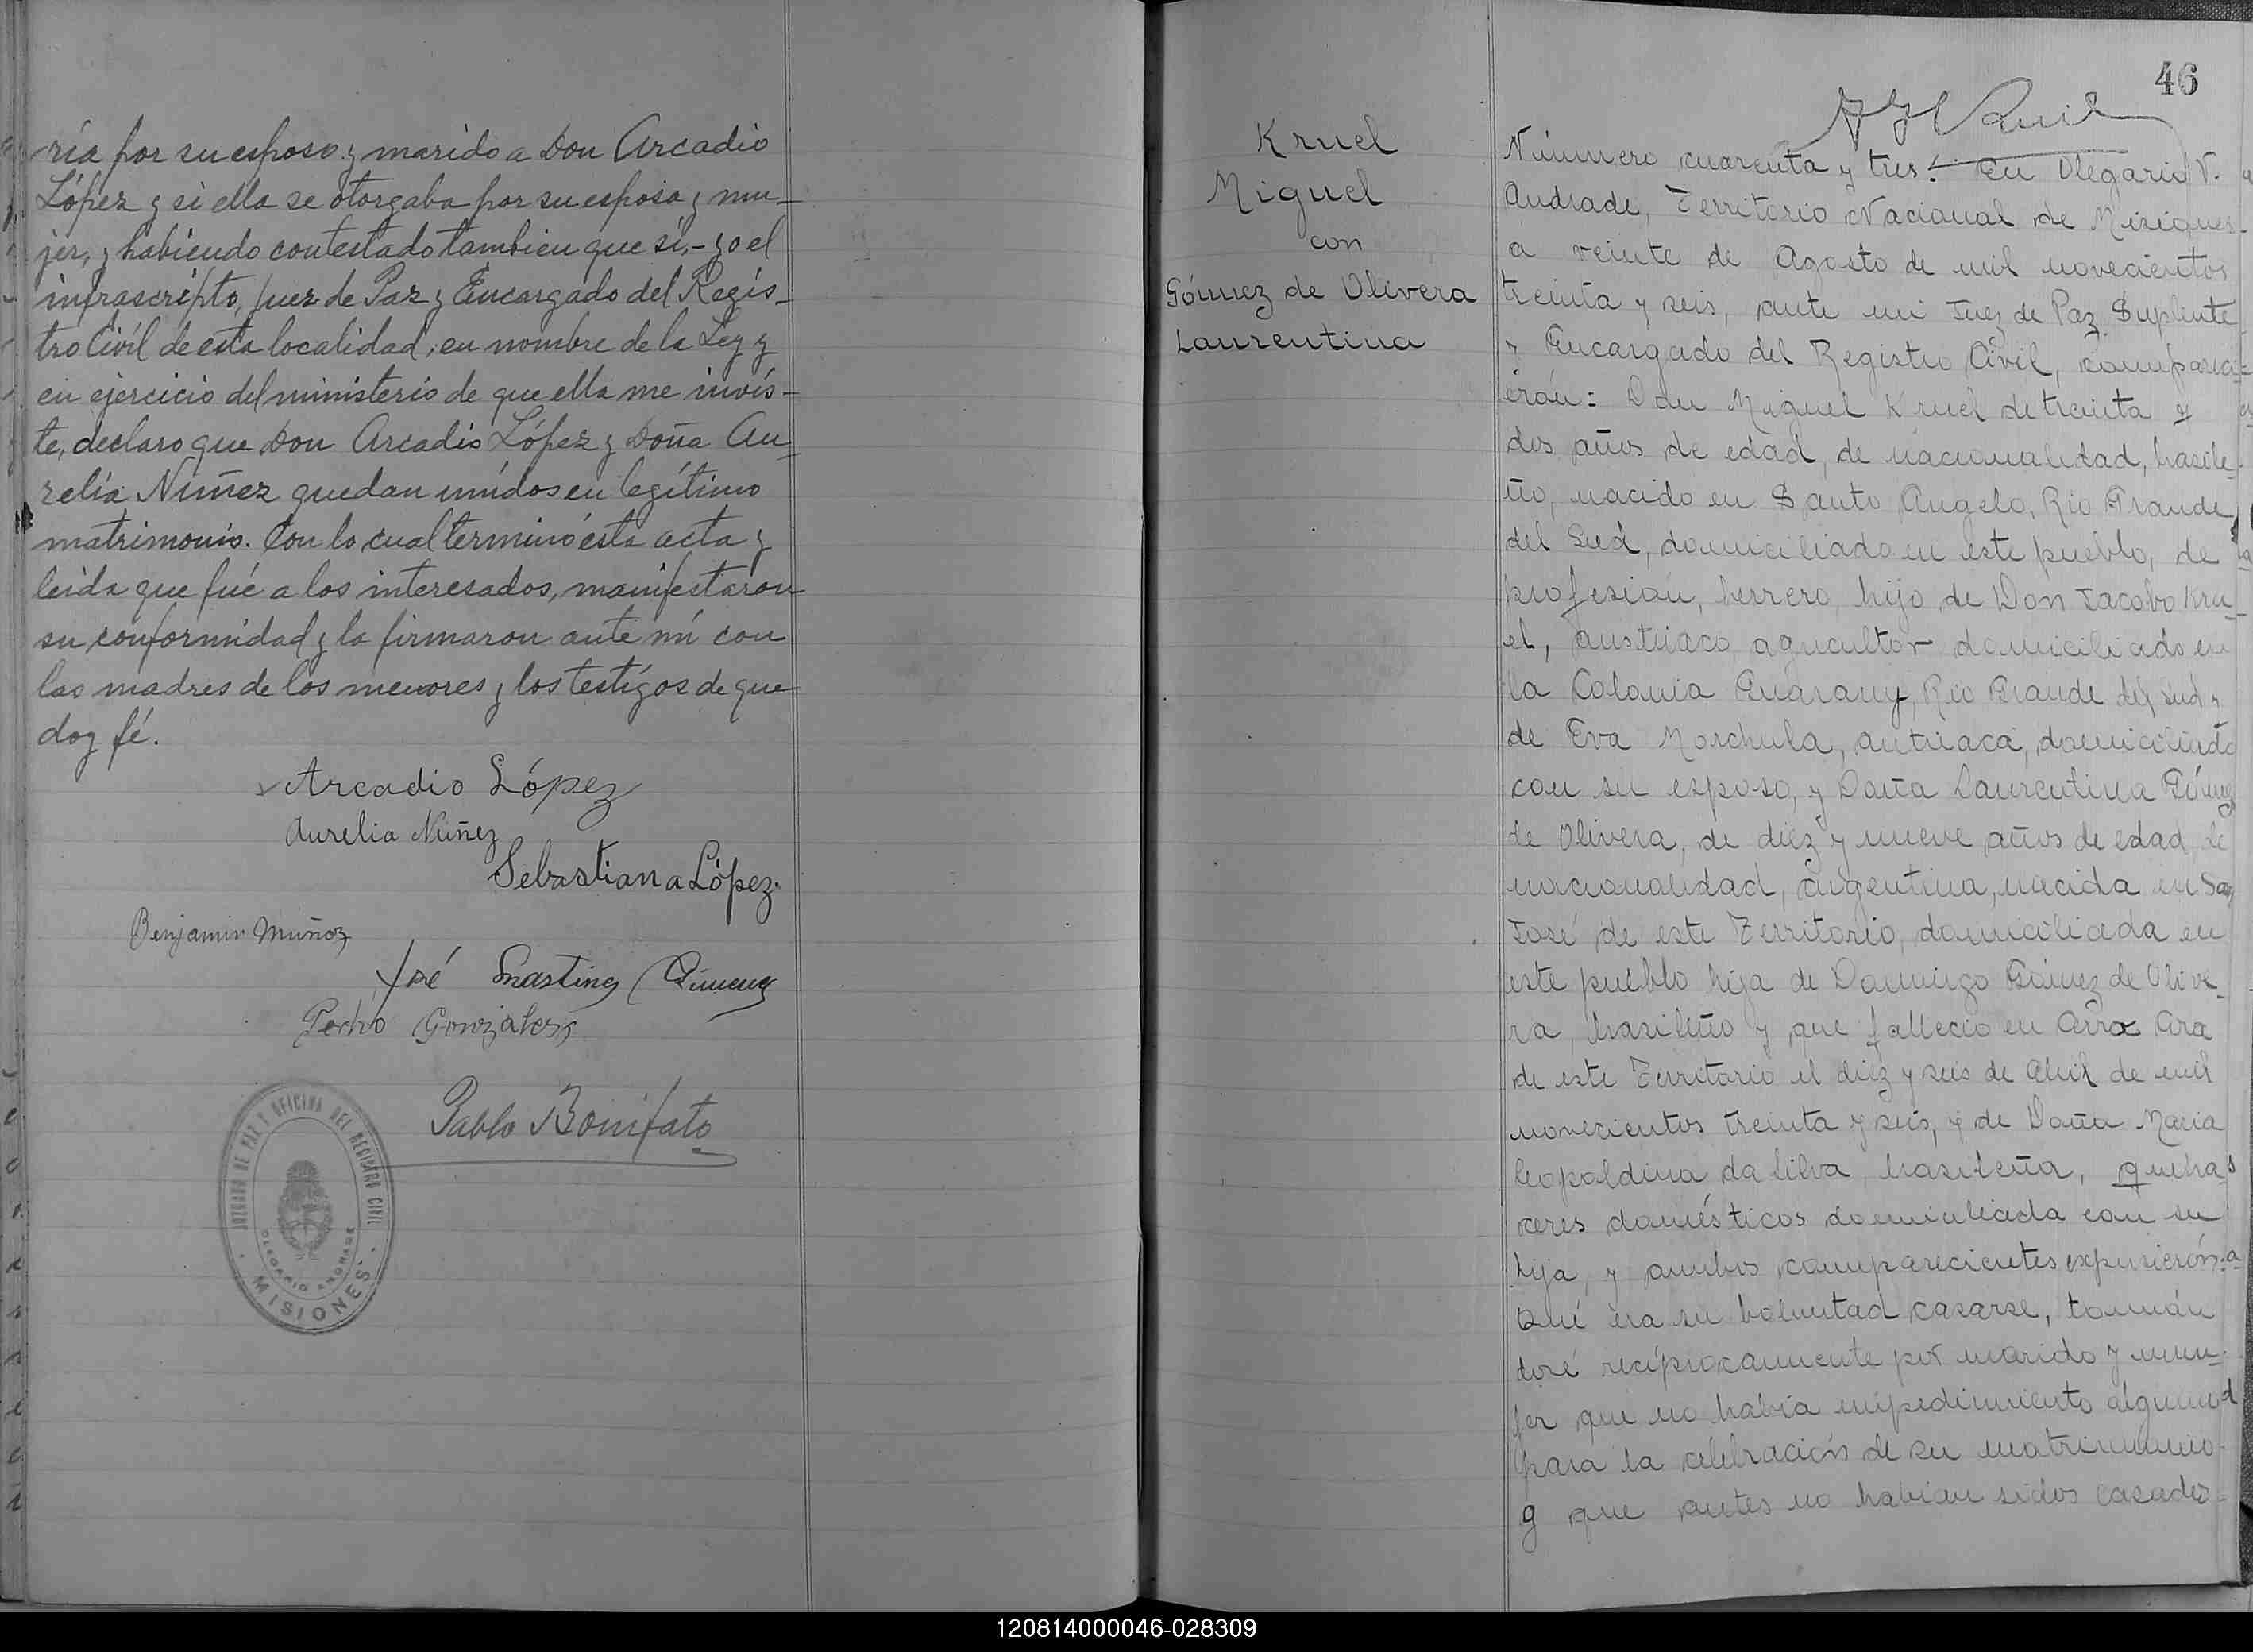 ría por su esposo y marido a Don Arcadio
López y si ella se otorgaba por su esposa y mu-
jer, y habiendo contestado tambien que sí,- yo el
infrascripto, Juez de Paz y Encargado del Regis-
tro Civil de esta localidad, en nombre de la Ley y
en ejercicio del ministerio de que ella me invis-
te, declaro que Don Arcadio López y Doña Au-
relia Nuñez quedan unídos en legítimo
matrimonio. Con lo cual terminó ésta acta y
leida que fué a los interesados, manifestaron
su conformidad y la firmaron ante mí con
las madres de los menores y los testígos de que
doy fé.
Arcadio López
Aurelia Núñez
Sebastiana López.
Benjamin Muñoz
José Martinez Gimenez
Pedro Gonzales
Pablo Bonifato
JUZGADO DE PAZ Y OFICINA DEL REGISTRO CIVIL
OLEGARIO ANDRADE
MISIONES
46
Kruel
Miguel
con
Gómez de Olivera
Laurentina
Número cuarenta y tres. En Olegario V.
Andrade, Territorio Nacional de Misiones
a veinte de Agosto de mil novecientos
treinta y seis, ante mi Juez de Paz Suplente
y Encargado del Registro Civil, compareci-
erón: Don Miguel Kruel de treinta y
dos años de edad, de nacionalidad, brasile-
ño, nacido en Santo Angelo, Rio Grande
del Sud, domiciliado en este pueblo, de
profesión, herrero, hijo de Don Jacobo Kru-
el, austriaco agricultor domiciliado en
la Colonia Guarany, Rio Grande del Sud y
de Eva Morchula, autriaca, domiciliada
con su esposo, y Doña Laurentina Gómez
de Olivera, de diez y nueve años de edad de
nacionalidad, argentina, nacida en San
José de este Territorio, domiciliada en
este pueblo hija de Domingo Gómez de Olive-
ra, brasileño y que fallecio en Cerro Cora
de este Territorio el diez y seis de Abril de mil
novecientos treinta y seis, y de Doña Maria
Leopoldina da Silva brasileña, quehas
ceres doméstícos domiciliada con su
hija, y ambos comparecientes expusierón:
Qué era su boluntad casarse, tomán
dosé recíprocamente por marido y mu-
jer que no había impedimiento alguno
para la celebración de su matrimonio
y que antes no habían sidos casados
120814000046-028309